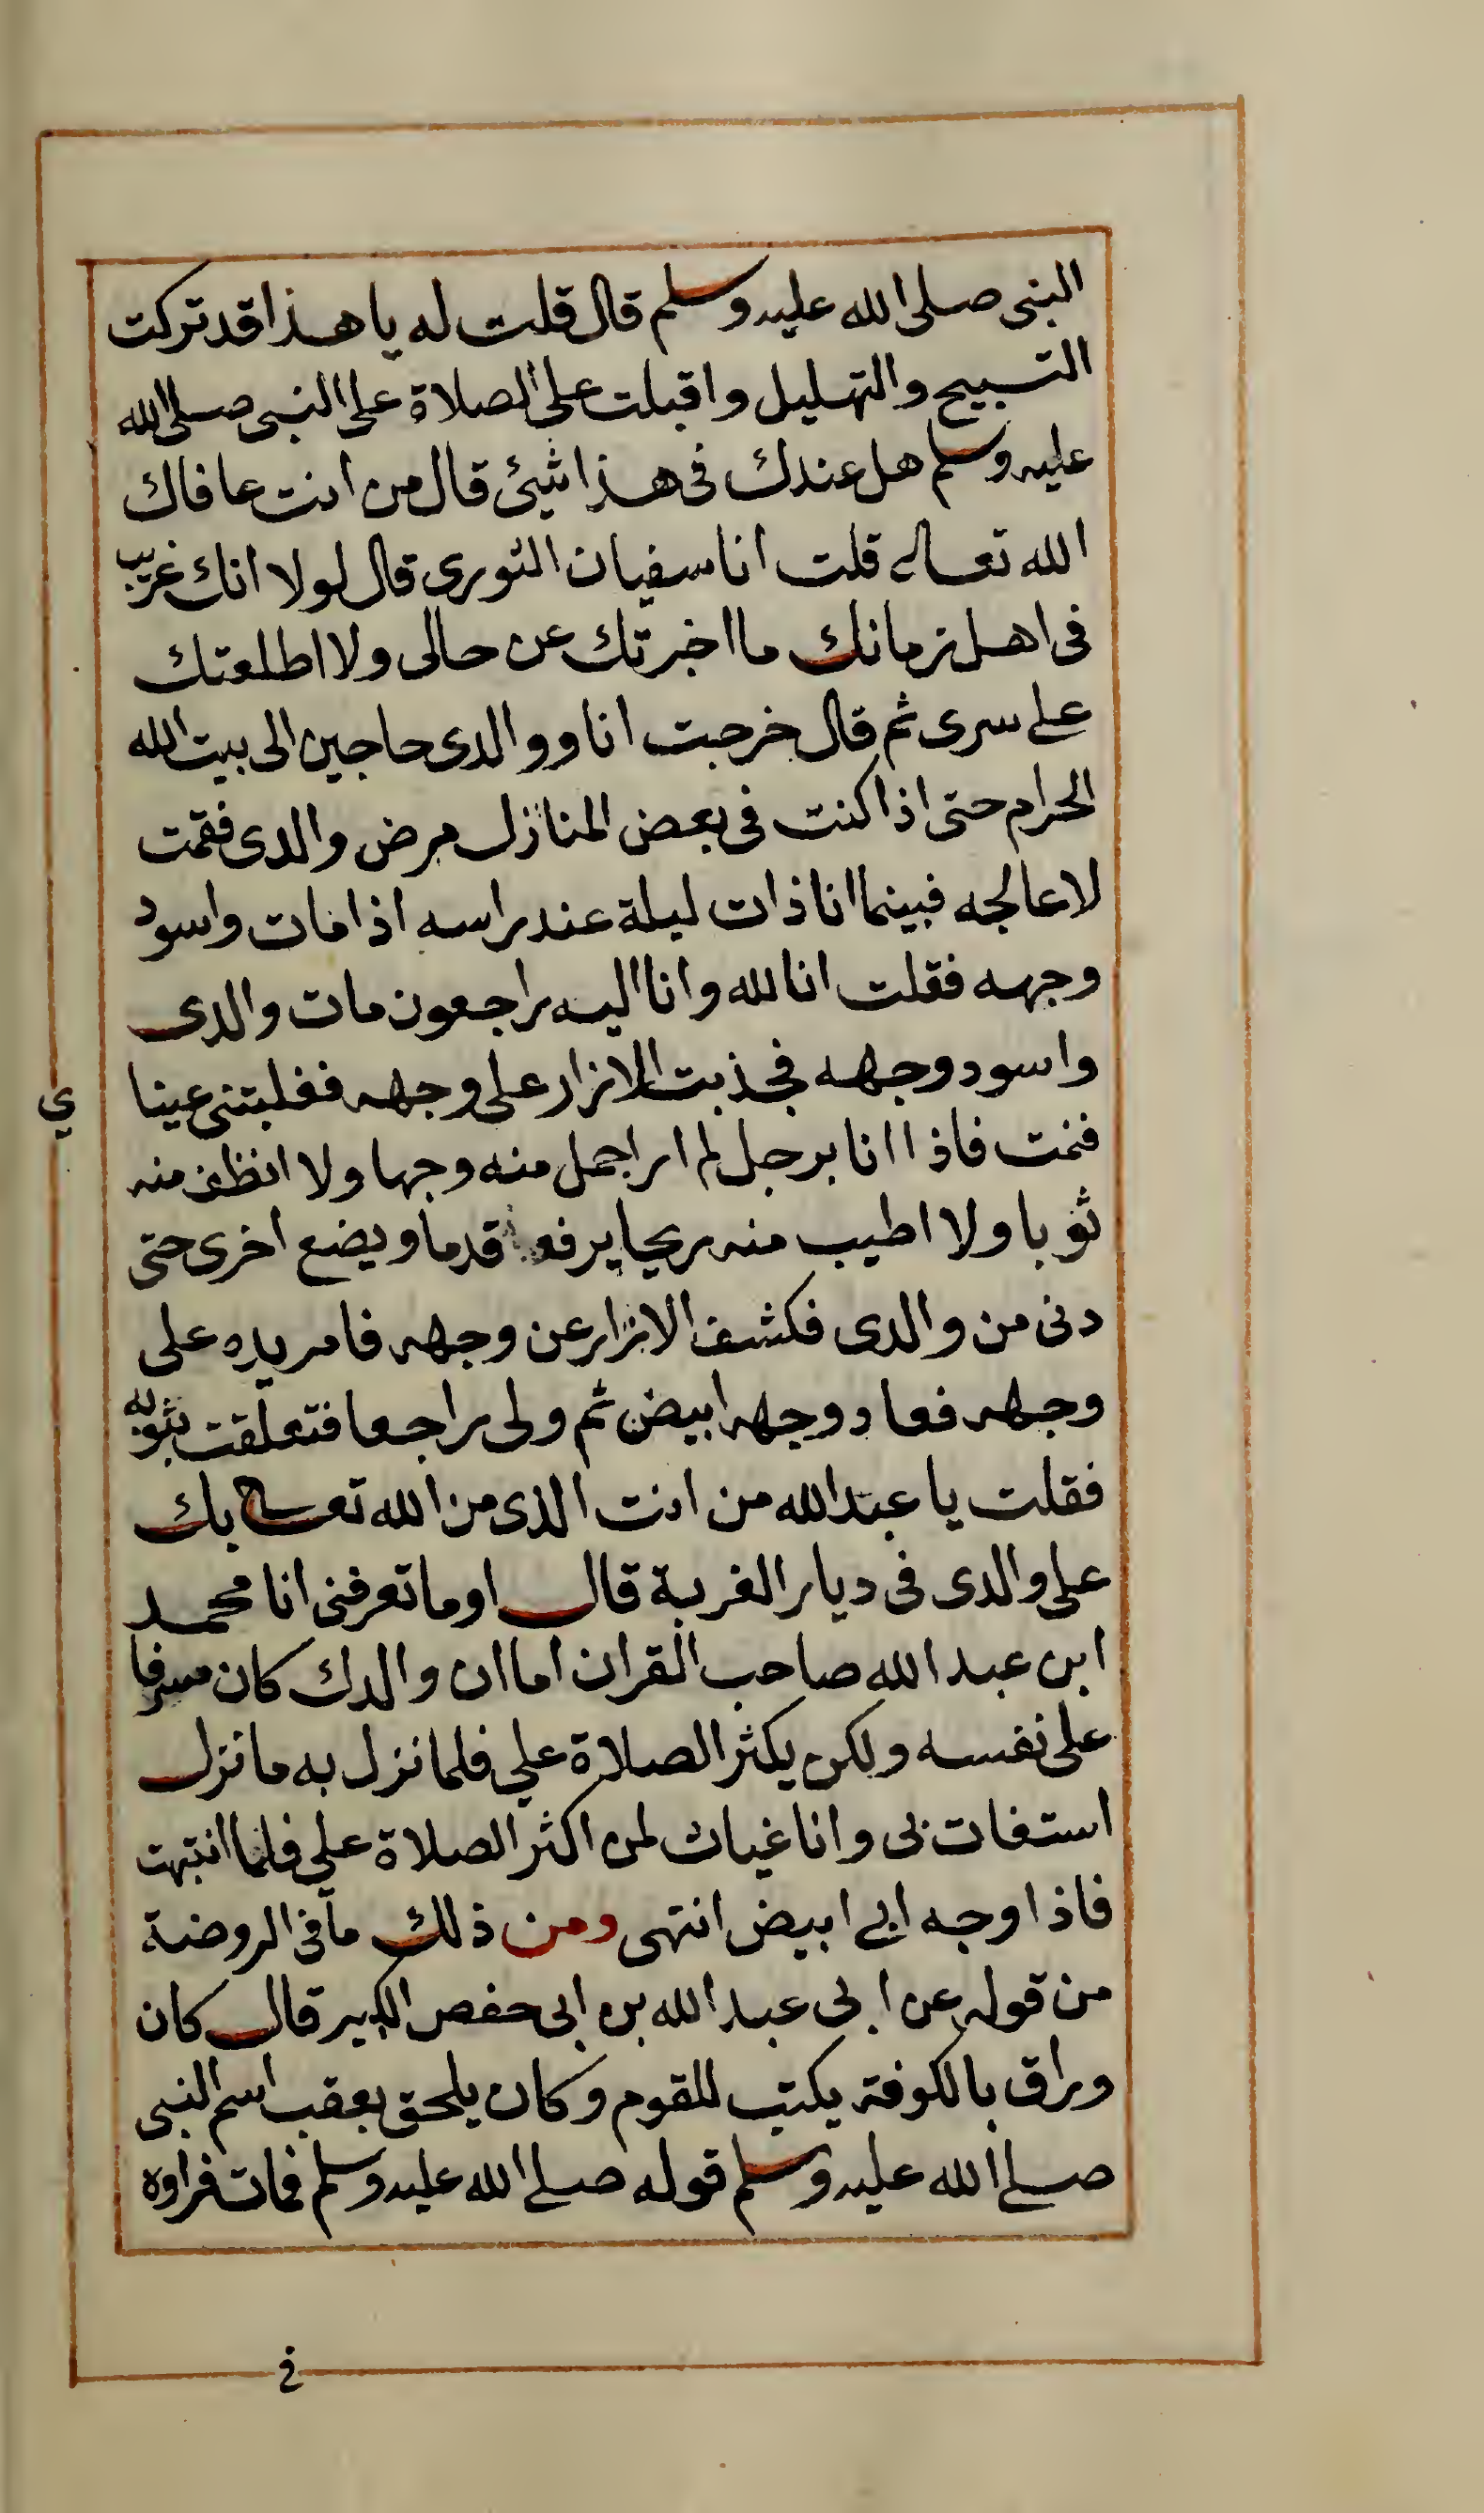 النبى صلى الله عليه وسلم قال قلت له يا هذا قد تركت
التسبيح والتهليل واقبلت على الصلاة على النبى صلى الله
عليه وسلم هل عندك فى هذا شيئ قال من انت عافاك
الله تعالى قلت انا سفيان الثورى قال لولا انك غريب
فى اهل زمانك ما اخبرتك عن حالى ولا اطلعتك
على سرى ثم قال خرجت انا ووالدى حاجين الى بيت الله
الحرام حتى اذا كنت فى بعض المنازل مرض والدى فقمت
لاعالجه فبينما انا ذات ليلة عند راسه اذا مات واسود
وجهه فقلت انا لله وانا اليه راجعون مات والدى
واسود وجهه فجذبت الازار على وجهه فغلبتنى عينا
ي
فنمت فاذا انا برجل لم ار اجمل منه وجها ولا انظف منه
ثوبا ولا اطيب منه ريحا يرفع قدما ويضع اخرى حتى
دنى من والدى فكشف الازار عن وجهه فامر يده على
وجهه فعاد وجهه ابيض ثم ولى راجعا فتعلقت بثوبه
فقلت يا عبد الله من انت الذى من الله تعالى بك
على والدى فى ديار الغربة قال اوما تعرفنى انا محمد
ابن عبد الله صاحب القران اما ان والدك كان مسرفا
على نفسه ولكن يكثر الصلاة علي فلما نزل به ما نزل
استغاث بى وانا غياث لمن اكثر الصلاة علي فلما انتبهت
فاذا وجه ابي ابيض انتهى ومن ذلك ما فى الروضة
من قوله عن ابى عبد الله بن ابى حفص الكبير قال كان
وراق بالكوفة يكتب للقوم وكان يلحق بعقب اسم النبى
صلى الله عليه وسلم قوله صلى الله عليه وسلم فمات فراوه